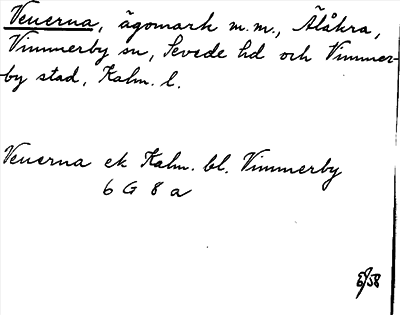 Venerna, ägomark m.m., Älåkra,
Vimmerby sn, Sevede hd och Vimmer-
by stad, Kalm. l.
Venerna ek Kalm. bl. Vimmerby
6 G 8 a
/58